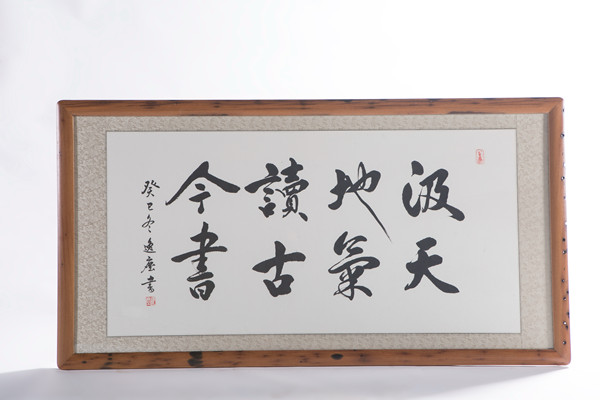 汲天
地氣
讀古
今書
癸巳冬逸塵書